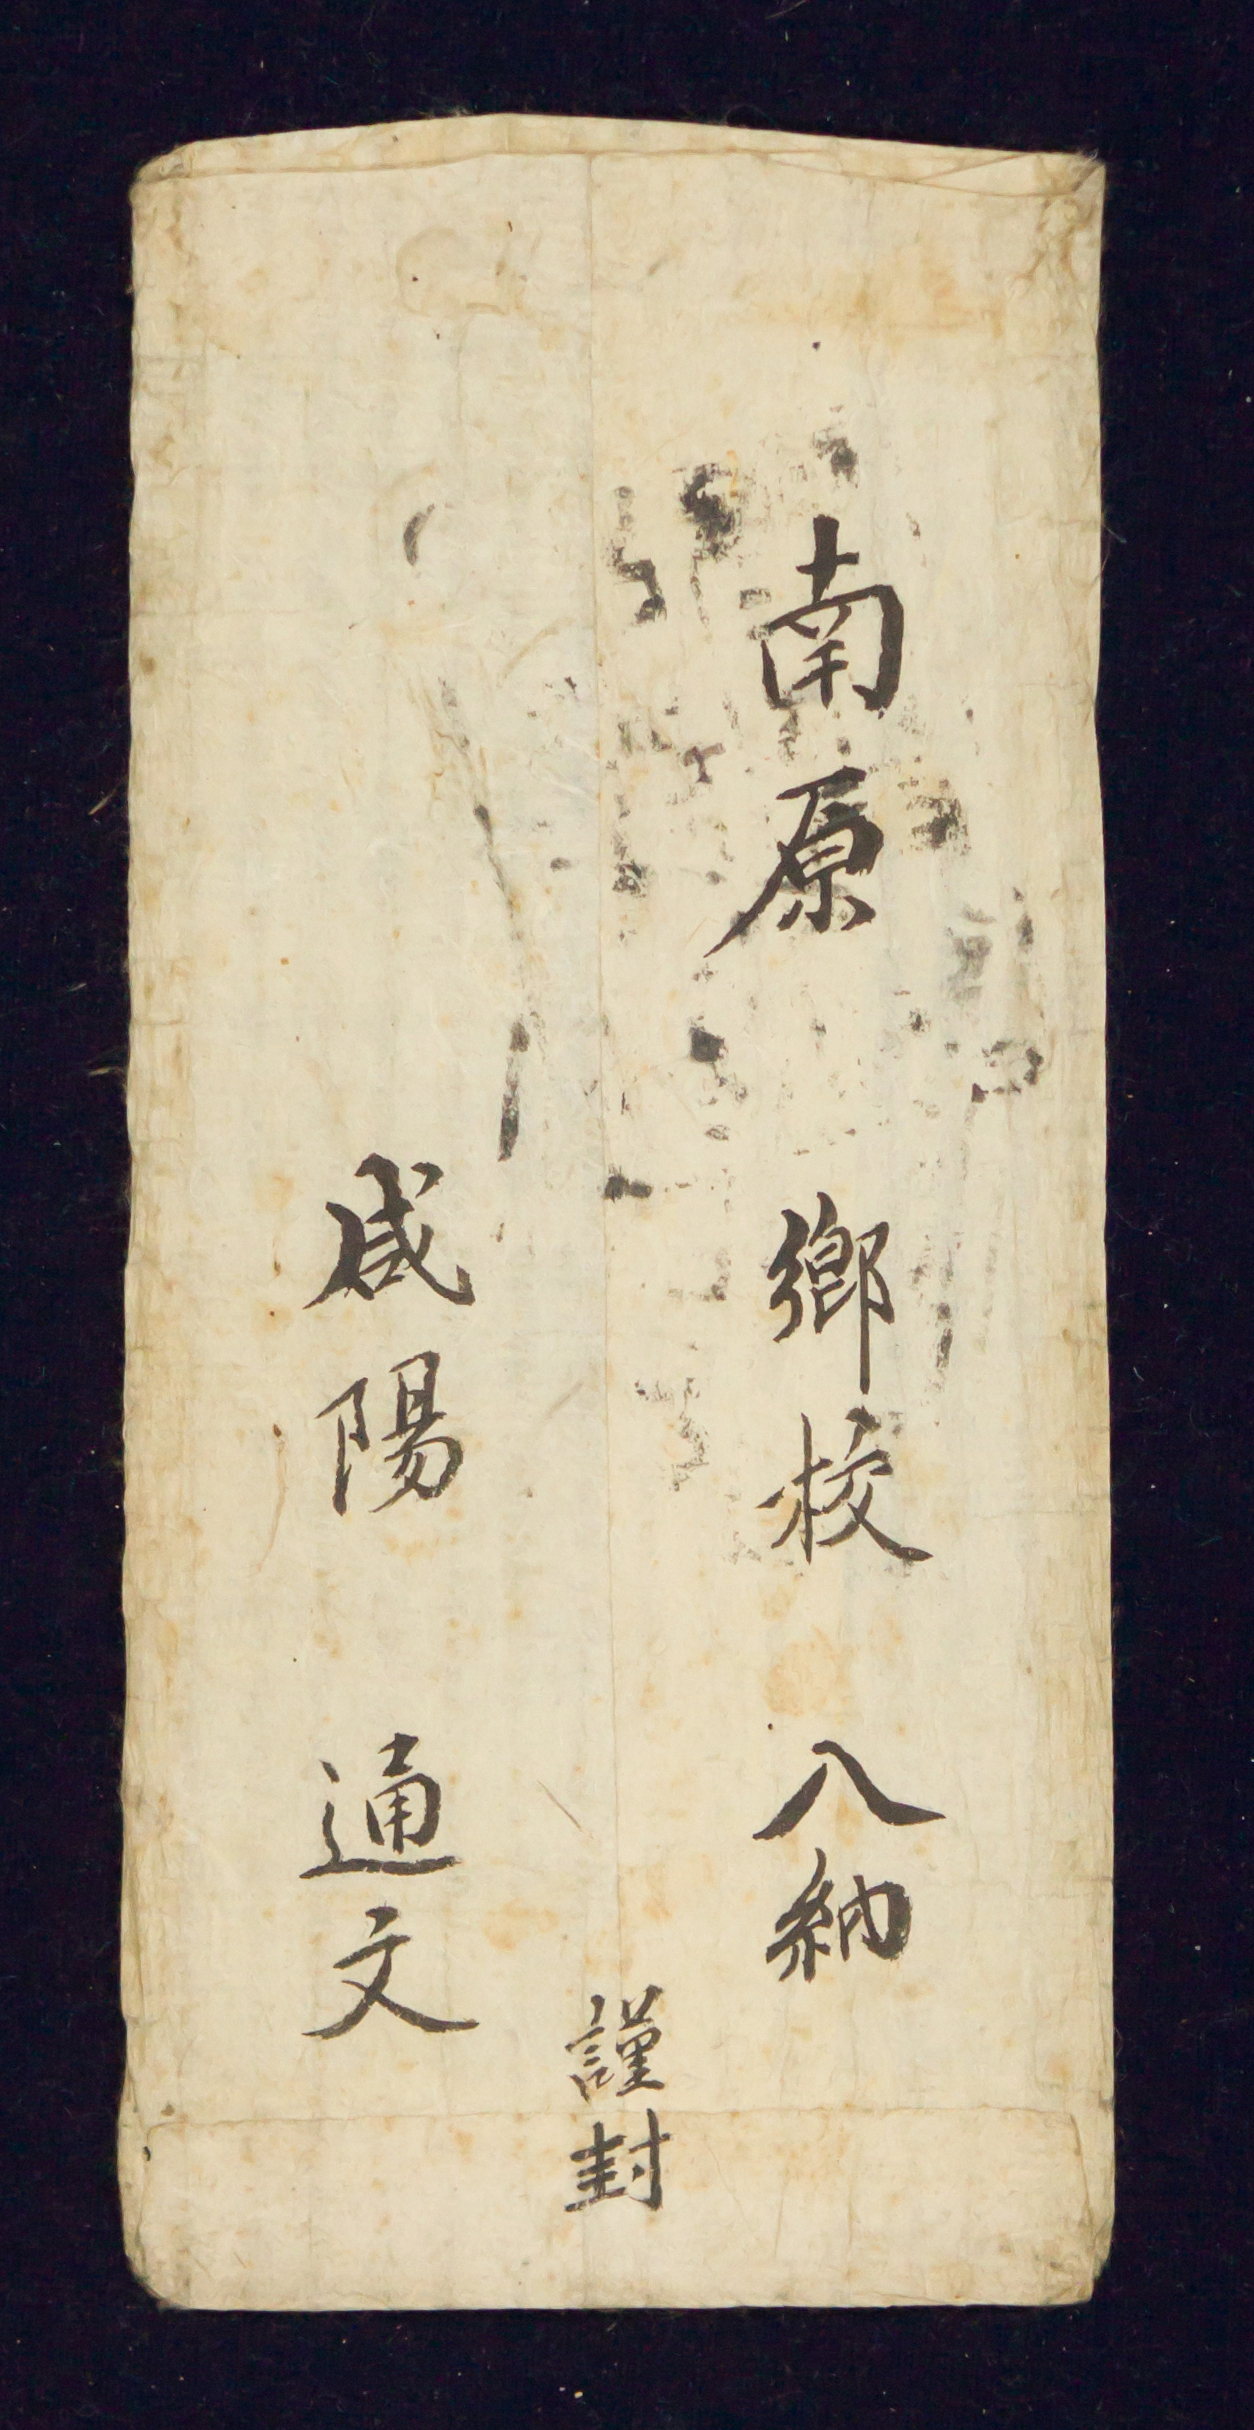 南原 鄕校 入納
謹封
咸陽 通文